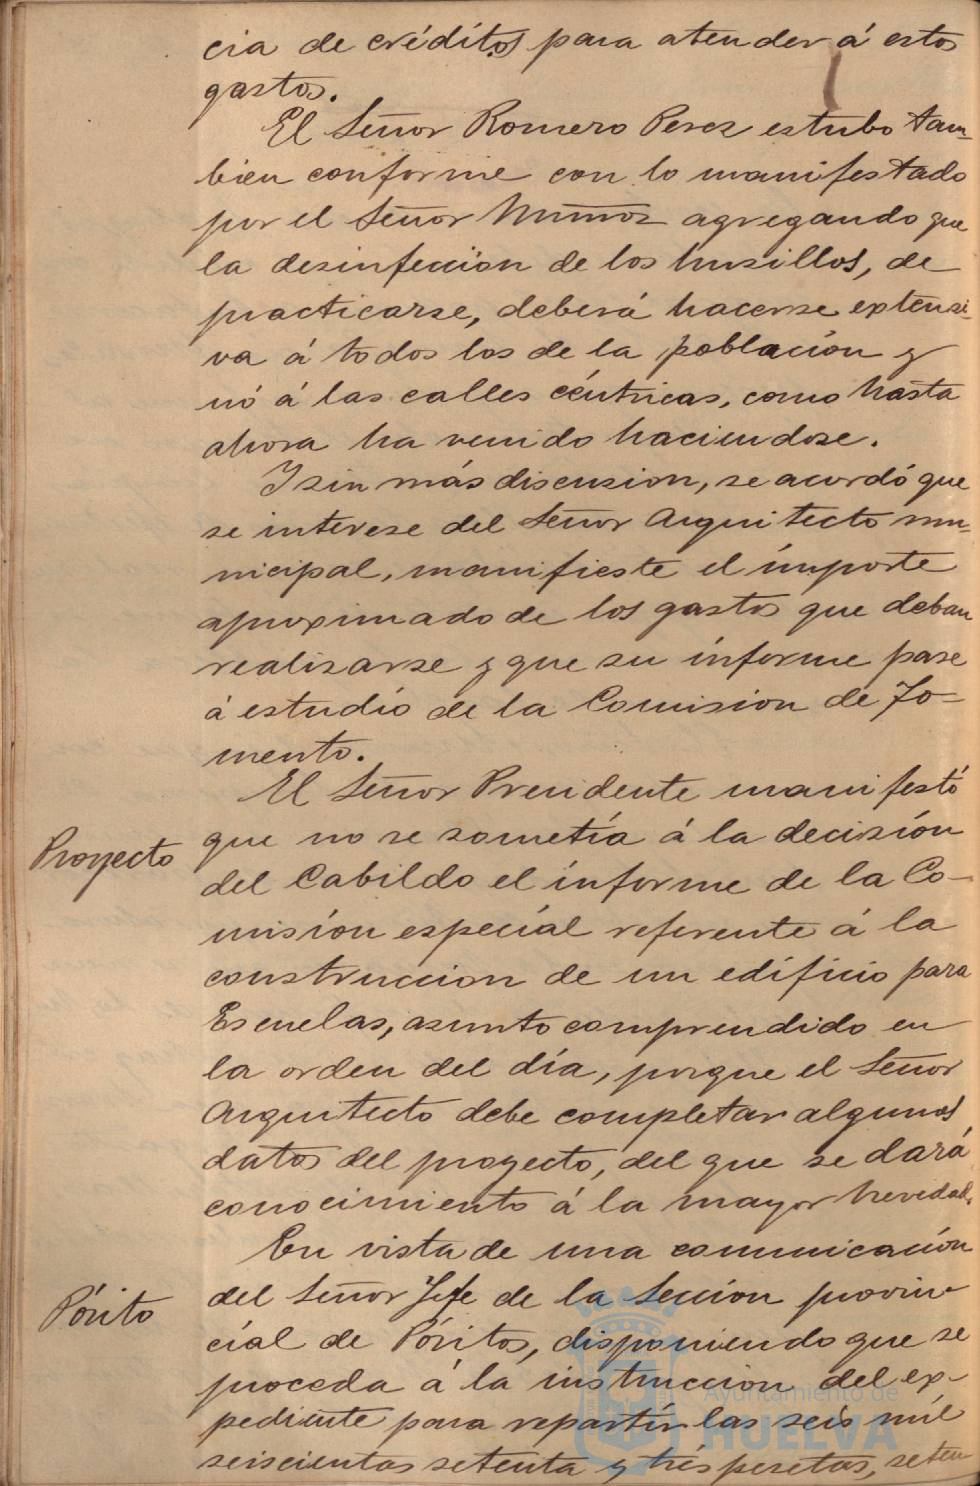 cia de créditos para atender á estos
gastos.
El Señor Romero Perez estubo tam-
bien conforme con lo manifestado
por el Señor Muñoz agregando que
la desinfección de los husillos, de
practicarse, deberá hacerse extensi-
va á todos los de la población y
nó á las calles céntricas, como hasta
ahora ha venido haciendose.
Y sin más discusion, se acordó que
se interese del Señor Arquitecto mu-
nicipal, manifieste el importe
aproximado de los gastos que deban
realizarse y que su informe pase
á estudio de la Comision de Fo-
mento.
El Señor Presidente manifestó
Proyecto
que no se sometía á la decisión
del Cabildo el informe de la Co-
misión especial referente á la
construccion de un edificio para
Escuelas, asunto comprendido en
la orden del día, porque el Señor
Arquitecto debe completar algunos
datos del proyecto, del que se dará
conocimiento á la mayor brevedad.
En vista de una comunicación
Pósito
del Señor Jefe de la Sección provin-
cial de Pósitos, disponiendo que se
proceda á la instruccion del ex-
pediente para repartir las seis mil
seiscientas setenta y tres pesetas, seten
Ayuntamiento de
HUELVA